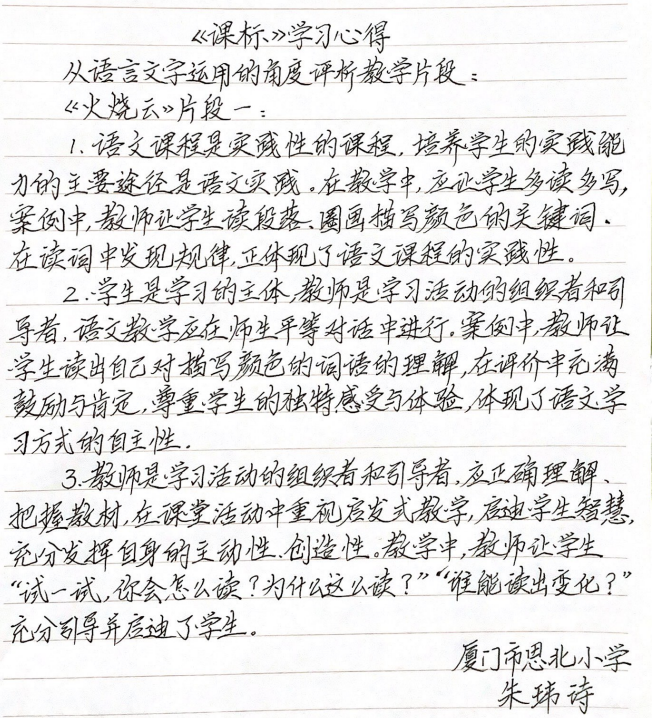 《课标》学习心得
从语言文字运用的角度评析教学片段：
《火烧云》片段一：
1.语文课程是实践性的课程，培养学生的实践能
力的主要途径是语文实践。在教学中，应让学生多读多写，
案例中，教师让学生读段落、圈画描写颜色的关键词.
在读词中发现规律，正体现了语文课程的实践性。
2.学生是学习的主体，教师是学习活动的组织者和引
导者，语文教学应在师生平等对话中进行。案例中，教师让
学生读出自己对描写颜色的词语的理解，在评价中充满
鼓励与肯定，尊重学生的独特感受与体验，体现了语文学
习方式的自主性.
3.教师是学习活动的组织者和引导者，应正确理解、
把握教材，在课堂活动中重视启发式教学，启迪学生智慧，
充分发挥自身的主动性、创造性。教学中，教师让学生
“试一试，你会怎么读？为什么这么读？”“谁能读出变化？”
充分引导并启迪了学生。
厦门市思北小学
朱玮诗